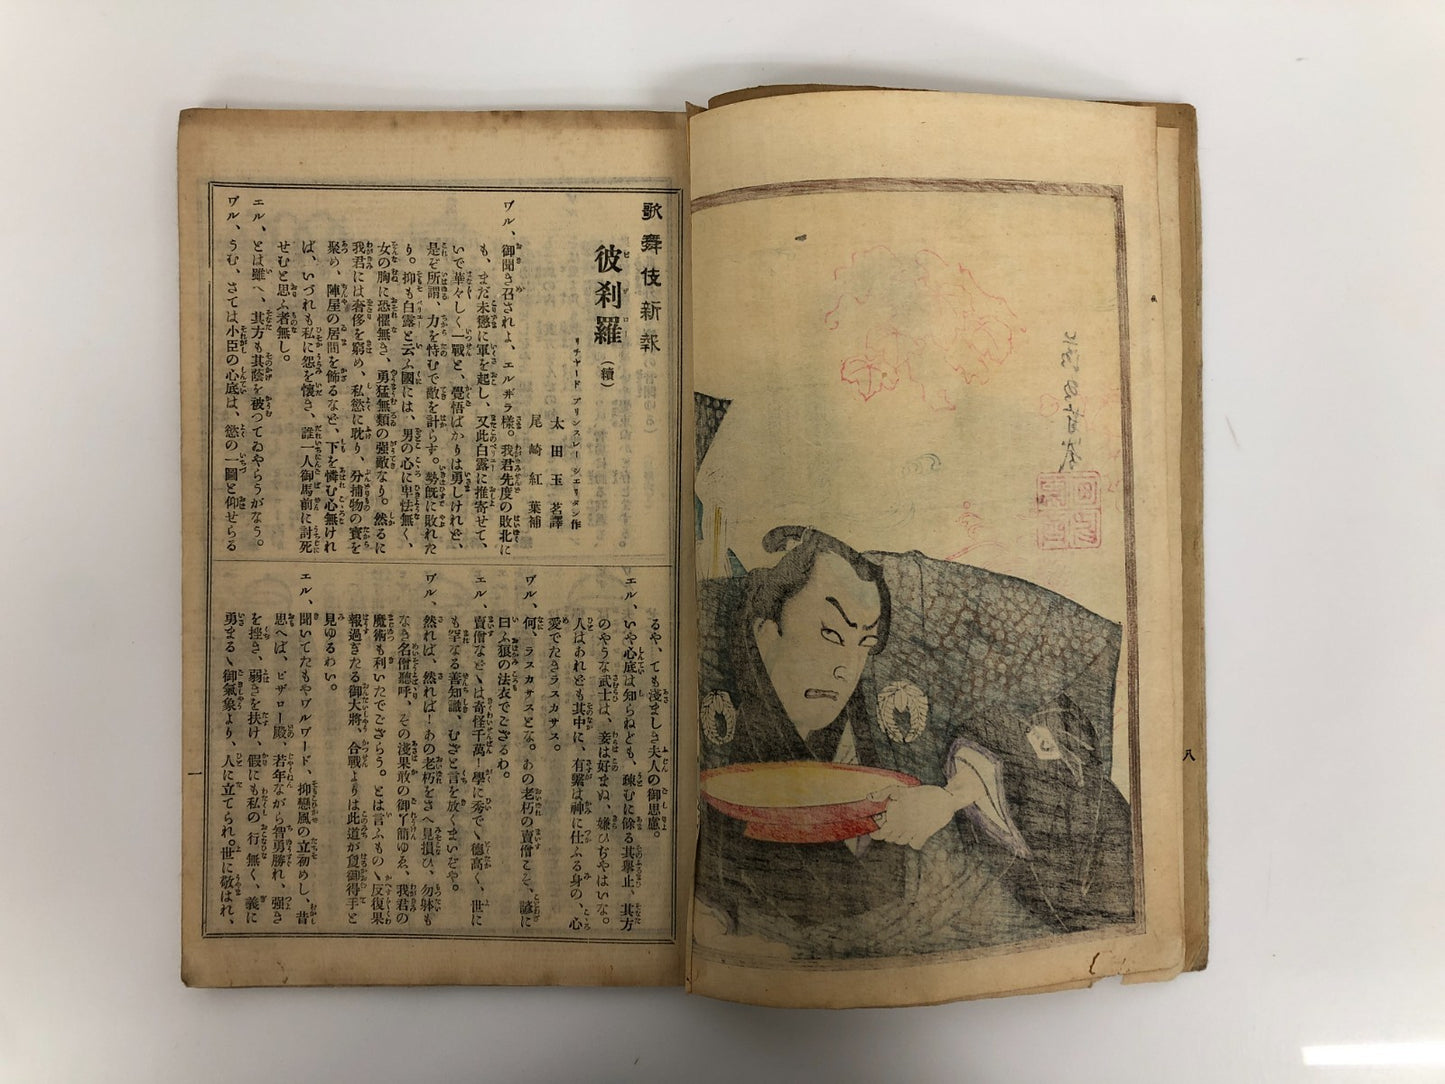 歌舞伎新報
彼刹羅（續）
リチヤード ブリンスレー シエリダン作
太田玉茗譯
尾崎紅葉補
ワル、御聞き召されよ、エルヸラ樣。我君先度の敗北に
も、まだ未懲に軍を起し、又此白露に推寄せて、
いで華々しく一戰と、覺悟ばかりは勇しけれど、
是ぞ所謂、力を恃むで敵を計らず。勢旣に敗れた
り。抑も白露と云ふ國には、男の心に卑怯無く、
女の胸に恐懼無き、勇猛無類の強敵なり。然るに
我君には奢侈を窮め、私慾に耽り、分捕物の寶を
聚め、陣屋の居間を飾るなど、下を憐む心無けれ
ば、いづれも私に怨を懷き、誰一人御馬前に討死
せむと思ふ者無し。
エル、とは雖へ、其方も其蔭を被つてゐやらうがなう。
ワル、うむ、さては小臣の心底は、慾の一圖と仰せらる
るや、ても淺ましき夫人の御思慮。
エル、いや心底は知らねども、疎むに餘る其擧止、其方
のやうな武士は、妾は好まぬ、嫌ひぢやはいな。
人はあれども其中に、有繋は神に仕ふる身の、心
愛でたきラスカサス。
ワル、何、ラスカサスとな。あの老朽の賣僧こそ、諺に
曰ふ狼の法衣でござるわ。
エル、賣僧などゝは奇怪千萬！學に秀でゝ德高く、世に
も罕なる善知識、むざと言を放くまいぞや。
ワル、然れば、然れば！あの老朽をさへ見損ひ、勿躰も
なき名僧聽呼、その淺果敢の御了簡ゆゑ、我君の
魔術も利いたでござらう。とは言ふものゝ反復果
報過ぎたる御大將、合戰よりは此道が夐御得手と
見ゆるわい。
エル、聞いてたもやワルワード、抑戀風の立初めし、昔
思へば、ビザロー殿、若年ながら智勇勝れ、強き
を挫き、弱きを扶け、假にも私の行無く、義に
勇まるゝ御氣象より、人に立てられ。世に敬はれ、
一
八